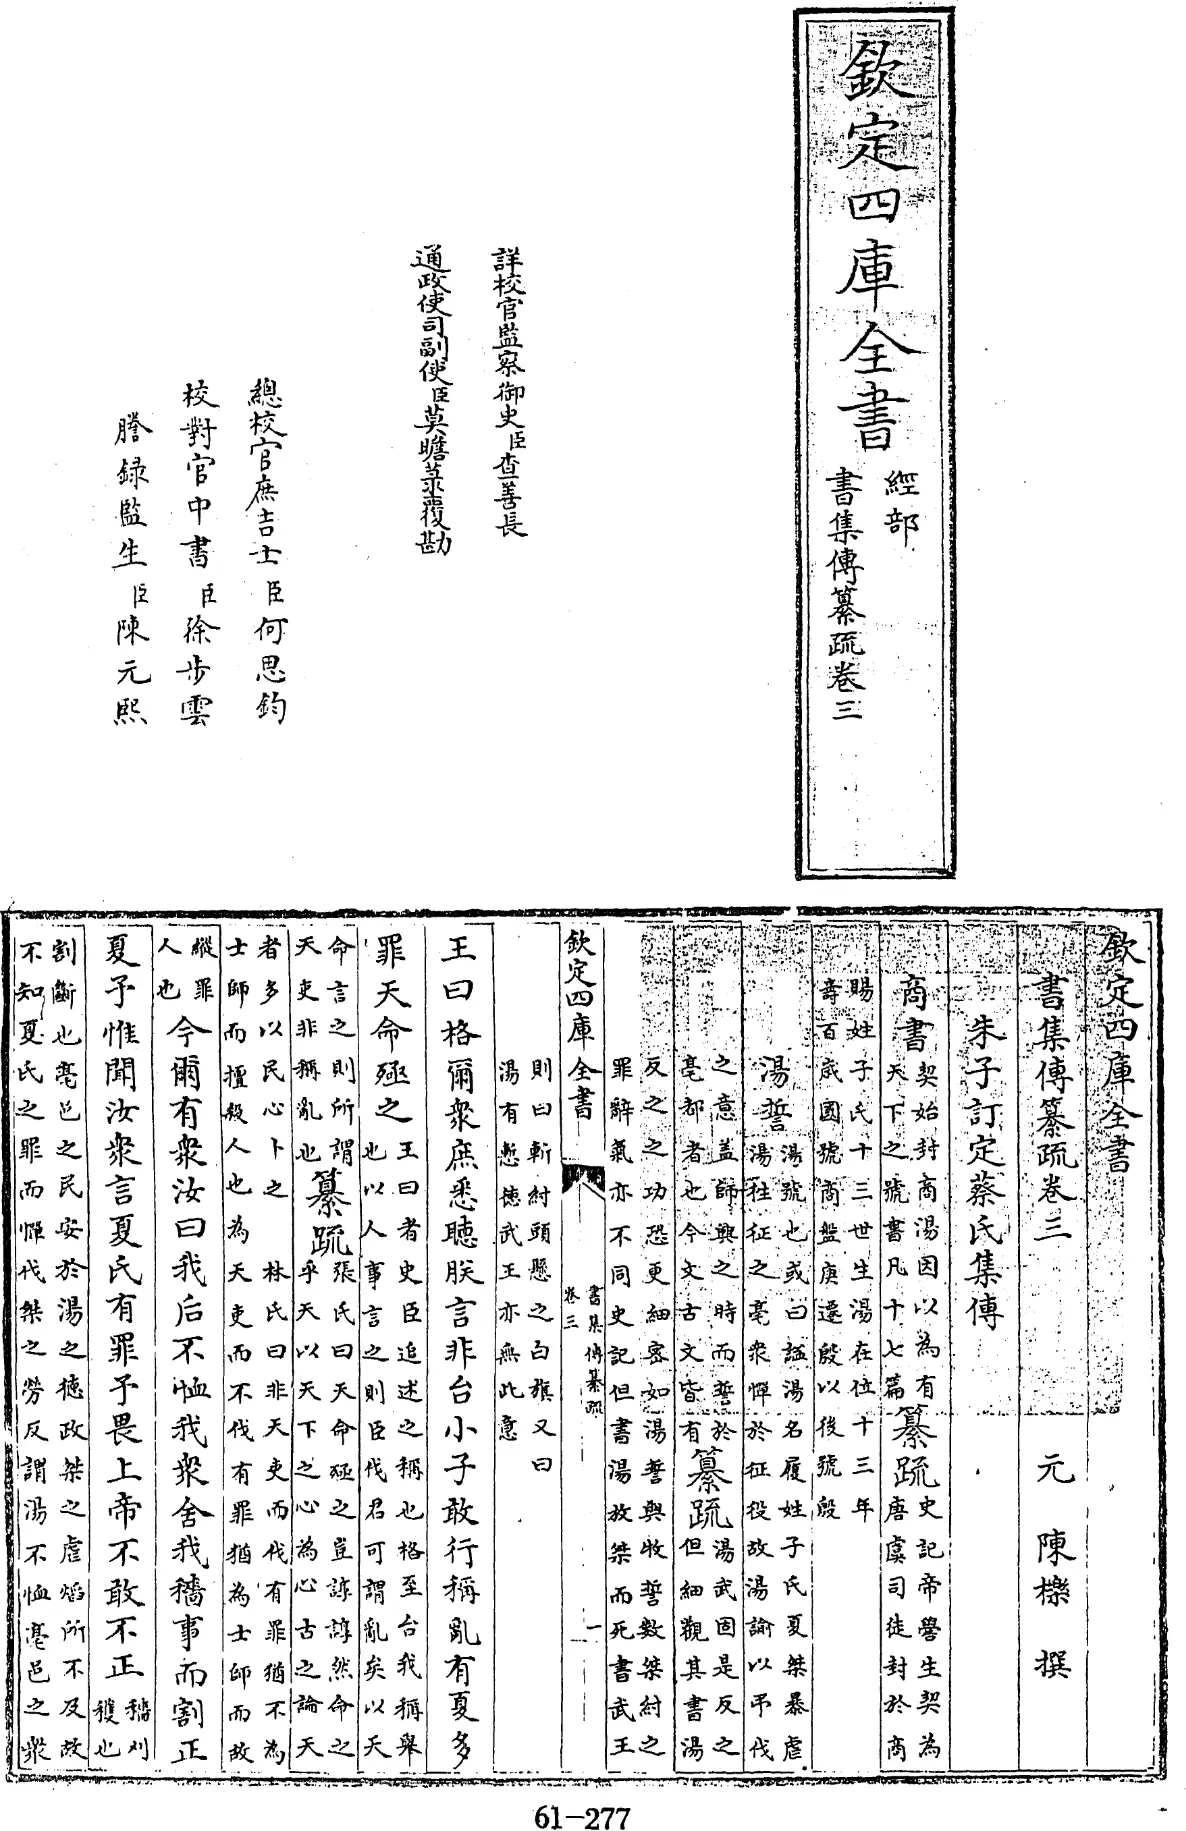 欽定四庫全書
經部
書集傳纂疏卷三
詳校官監察御史臣查善長
通政使司副使臣莫瞻菉覆勘
總校官庶吉士臣何思鈞
校對官中書臣徐步雲
謄錄監生臣陳元熙
欽定四庫全書
書集傳纂疏卷三
元 陳櫟 撰
朱子訂定蔡氏集傳
商書
契始封商湯因以為有
天下之號書凡十七篇
纂疏
史記帝嚳生契為
唐虞司徒封於商
賜姓子氏十三世生湯在位十三年
壽百歲國號商盤庚遷殷以後號殷
湯誓
湯號也或曰謚湯名履姓子氏夏桀暴虐
湯往征之亳衆憚於征役故湯諭以弔伐
之意盖師興之時而誓於
亳都者也今文古文皆有
纂疏
湯武固是反之
但細觀其書湯
反之之功恐更細密如湯誓與牧誓數桀紂之
罪辭氣亦不同史記但書湯放桀而死書武王
則曰斬紂頭懸之白旗又曰
湯有慙徳武王亦無此意
欽定四庫全書
書集傳纂疏
卷三
一
王曰格爾衆庶悉聽朕言非台小子敢行稱亂有夏多
罪天命殛之
王曰者史臣追述之稱也格至台我稱舉
也以人事言之則臣伐君可謂亂矣以天
命言之則所謂
天吏非稱亂也
纂疏
張氏曰天命殛之豈諄諄然命之
乎天以天下之心為心古之論天
者多以民心卜之 林氏曰非天吏而伐有罪猶不為
士師而擅殺人也為天吏而不伐有罪猶為士師而故
縱罪
人也
今爾有衆汝曰我后不恤我衆舍我穡事而割正
夏予惟聞汝衆言夏氏有罪予畏上帝不敢不正
穡刈
穫也
割斷也亳邑之民安於湯之徳政桀之虐焰所不及故
不知夏氏之罪而憚伐桀之勞反謂湯不恤亳邑之衆
61-277